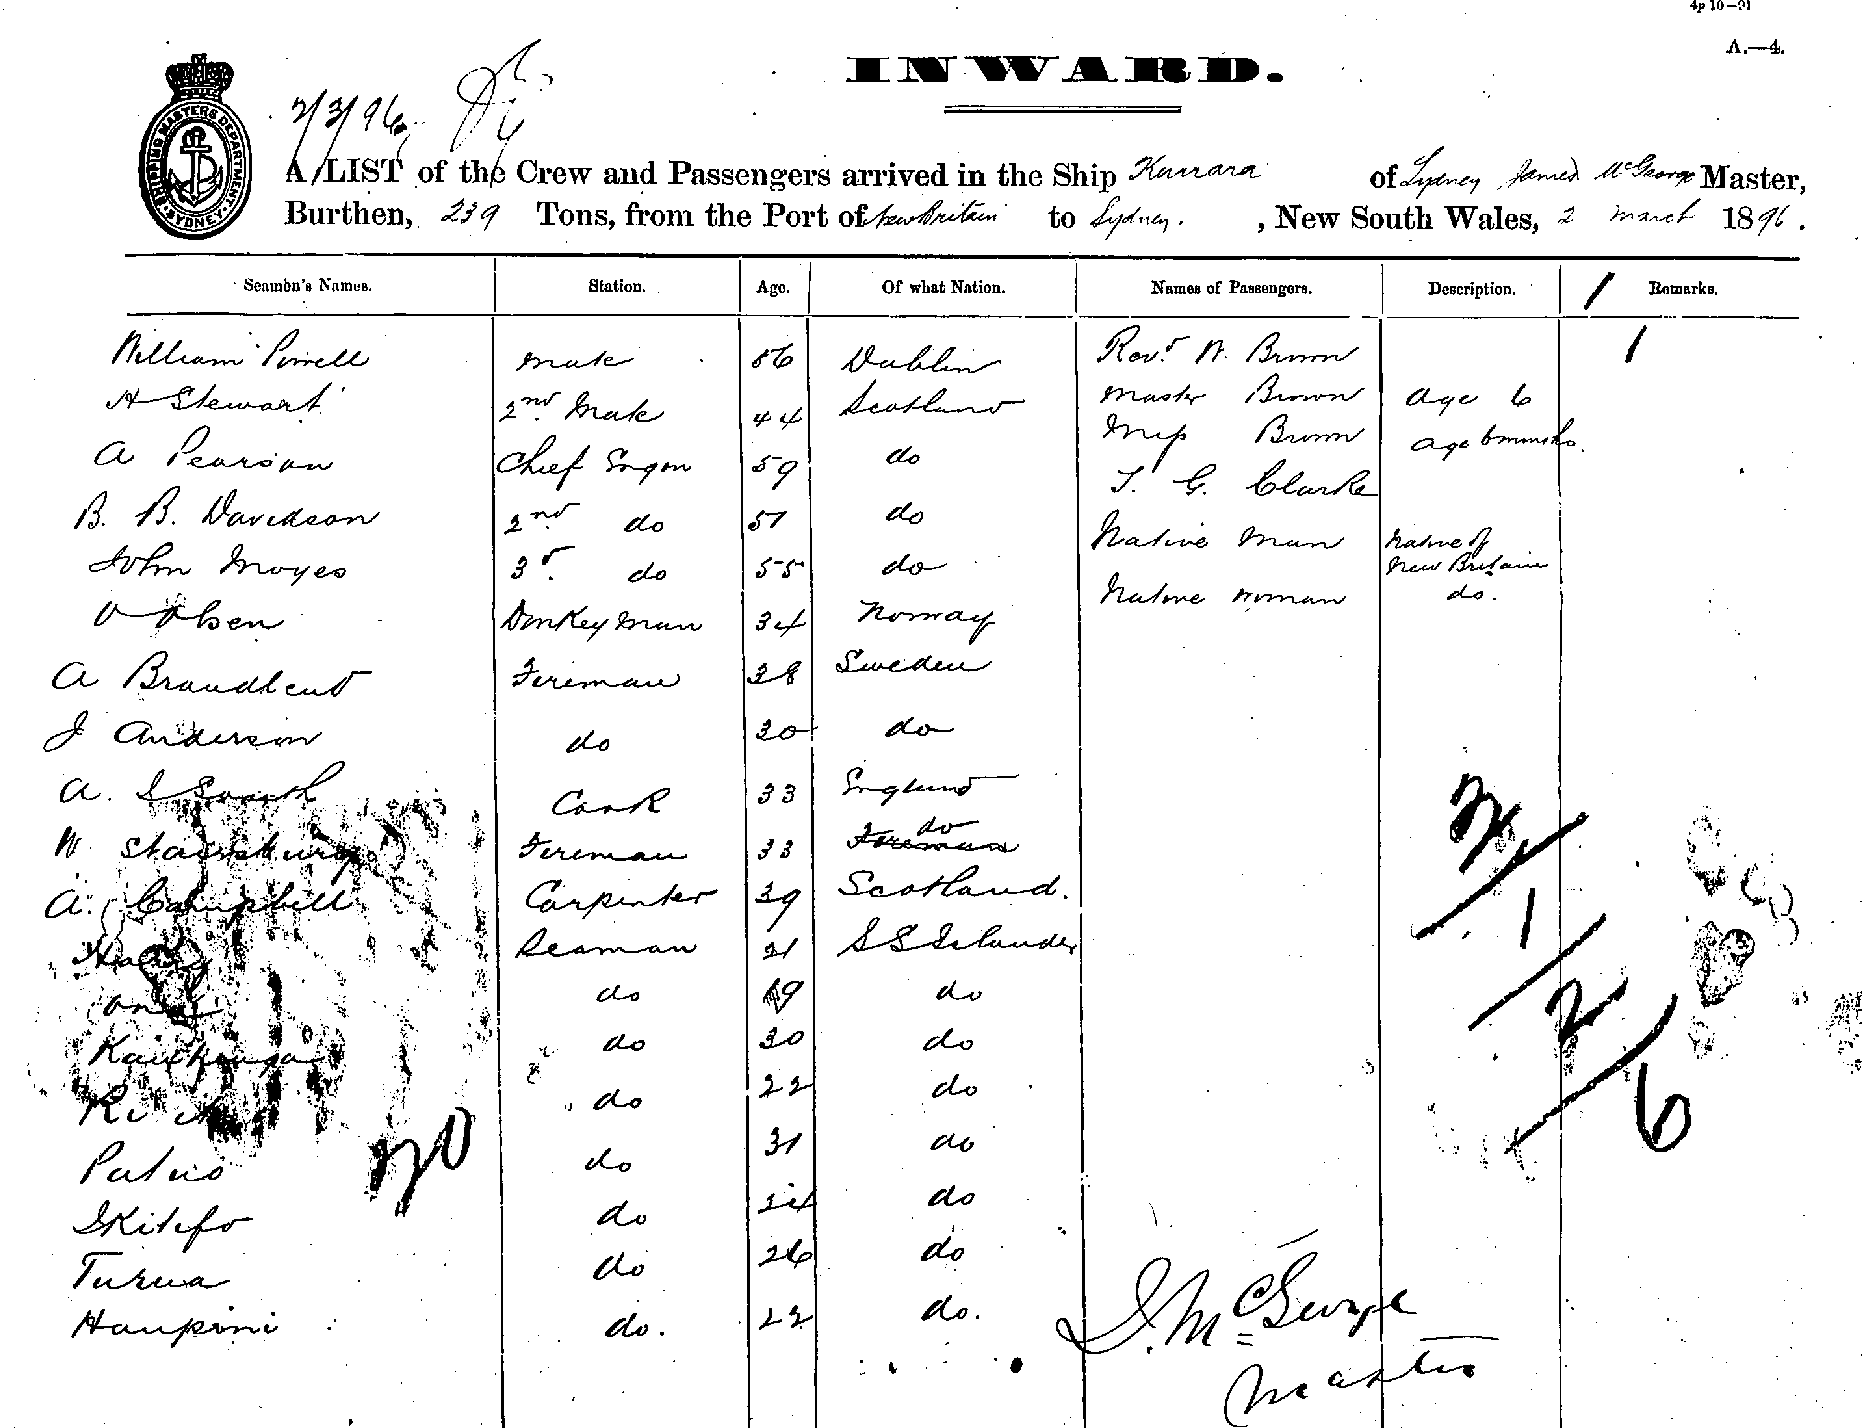 4p 10—91
A.—4.
INWARD.
2/3/96
SHIPPING MASTERS DEPARTMENT. SYDNEY.
A LIST of the Crew and Passengers arrived in the Ship Kurrara of Sydney James McGeorge Master,
Burthen, 239 Tons, from the Port of New Britain to Sydney. , New South Wales, 2 March 1896.
Seamen's Names. Station. Age. Of what Nation. Names of Passengers. Description. Remarks.
William Powell Mate 56 Dublin Revd W. Brown
H Stewart 2nd Mate 44 Scotland Master Brown age 6
A Pearson Chief Engen 59 do Miss Brown age 6 months.
B. B. Davidson 2nd do 51 do T. G. Clarke
John Moyes 3d. do 55 do Native Man Native of New Britain
O Olsen Donkey Man 34 Norway Native Woman do.
A Brandbent Fireman 38 Sweden
J Anderson do 30 do
A. Cook 33 England
W Stainsbury Fireman 33 do Fireman
A. Campbell Carpenter 39 Scotland.
Harry Seaman 21 S S Islander
do 19 do
do 30 do
do 22 do
do 31 do
do 24 do
Turua do 26 do
Haupini do. 22 do.
20
1
2
6
J. McGeorge
Master